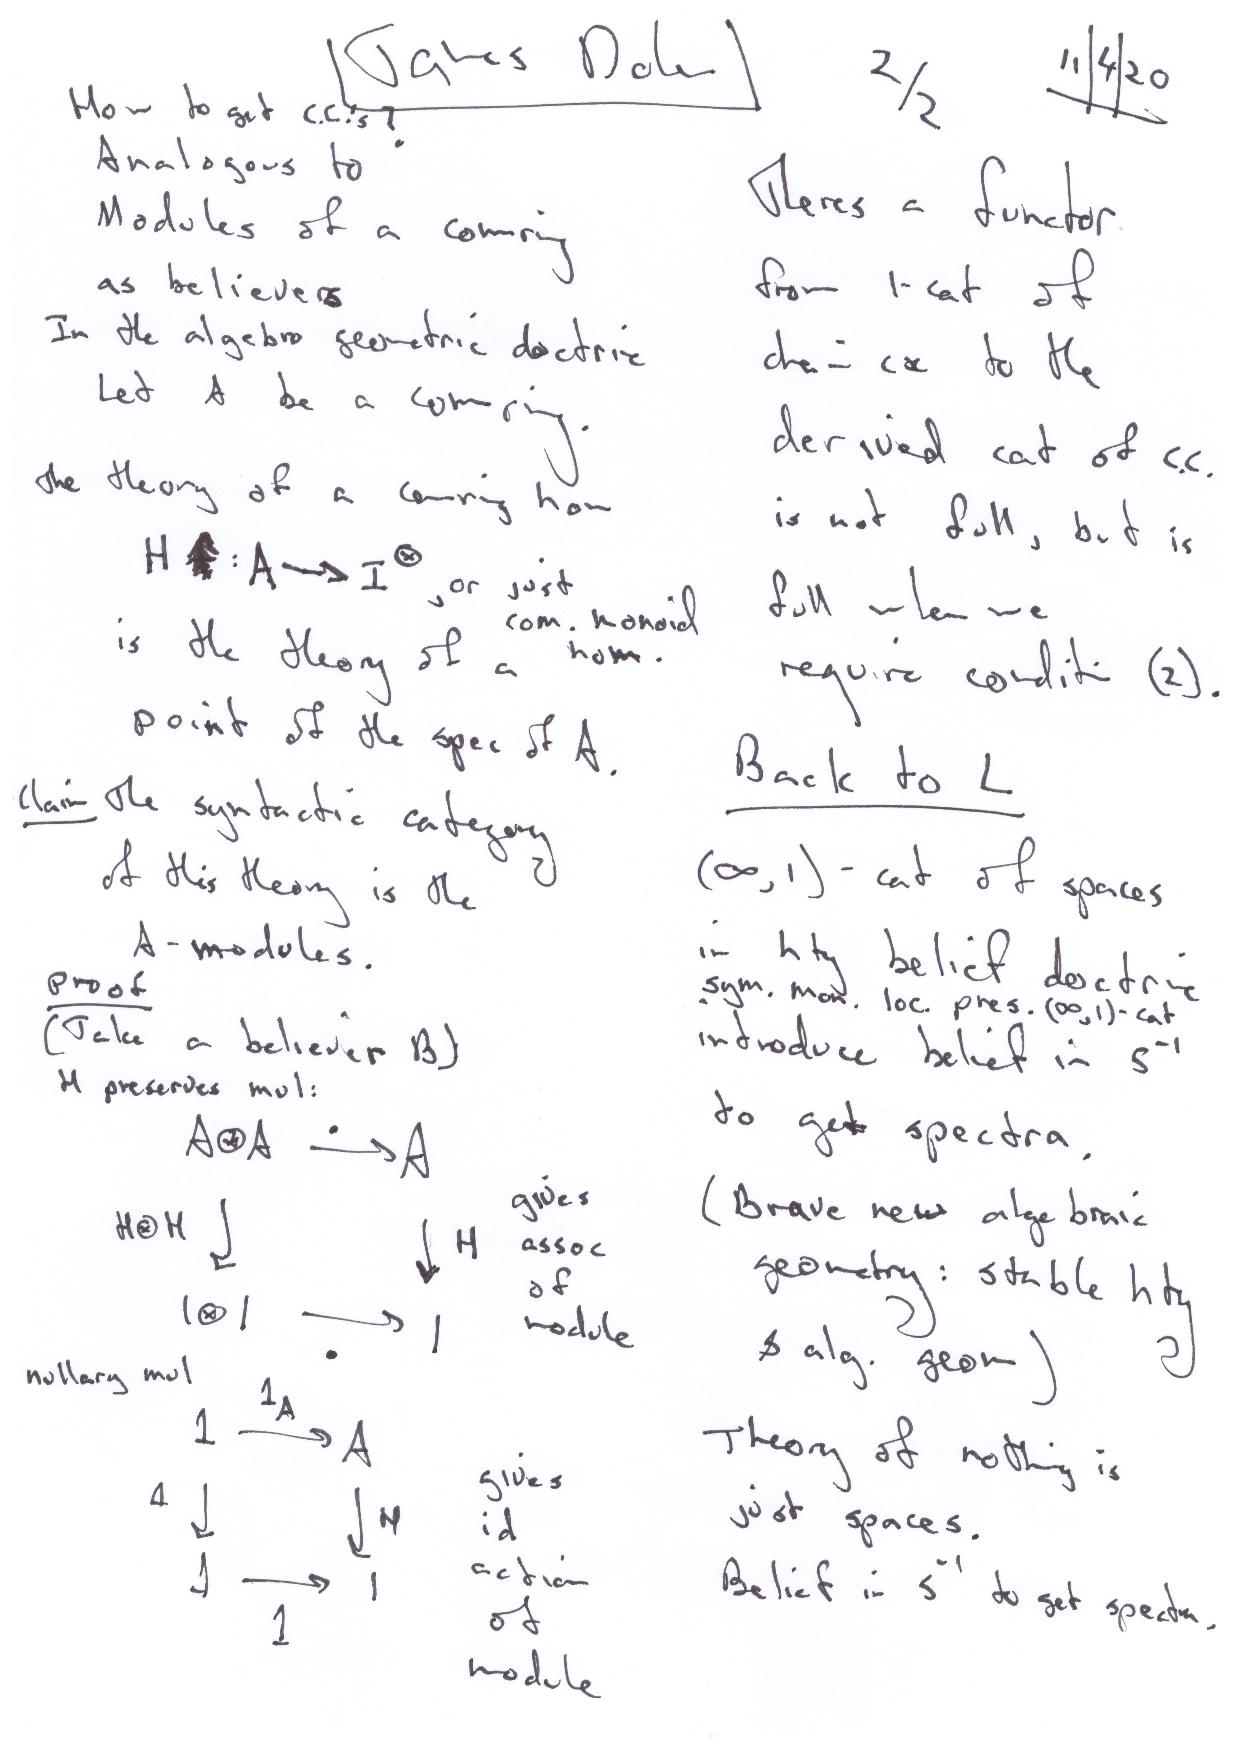 James Dolan
2/2
11/4/20
How to get c.c.'s?
Analogous to
Modules of a comring
as believers
In the algebro geometric doctrine
Let A be a comring.
the theory of a comring hom
H : A → I⊗, or just
com. monoid
hom.
is the theory of a
point of the spec of A.
Claim the syntactic category
of this theory is the
A-modules.
Proof
(Take a believer B)
H preserves mul:
A⊗A → A
H⊗H ↓ ↓ H
1⊗1 → 1
gives
assoc
of
module
nullary mul
1_A
1 → A
1 ↓ ↓ H
1 → 1
1
gives
id
action
of
module
Theres a functor
from 1-cat of
chain cx to the
derived cat of c.c.
is not full, but is
full when we
require conditi (2).
Back to L
(∞,1)-cat of spaces
in hty belief doctrine
sym. mon. loc. pres. (∞,1)-cat
introduce belief in S⁻¹
to get spectra.
(Brave new algebraic
geometry: stable hty
$ alg. geom)
Theory of nothing is
just spaces.
Belief in S⁻¹ to get spectra.